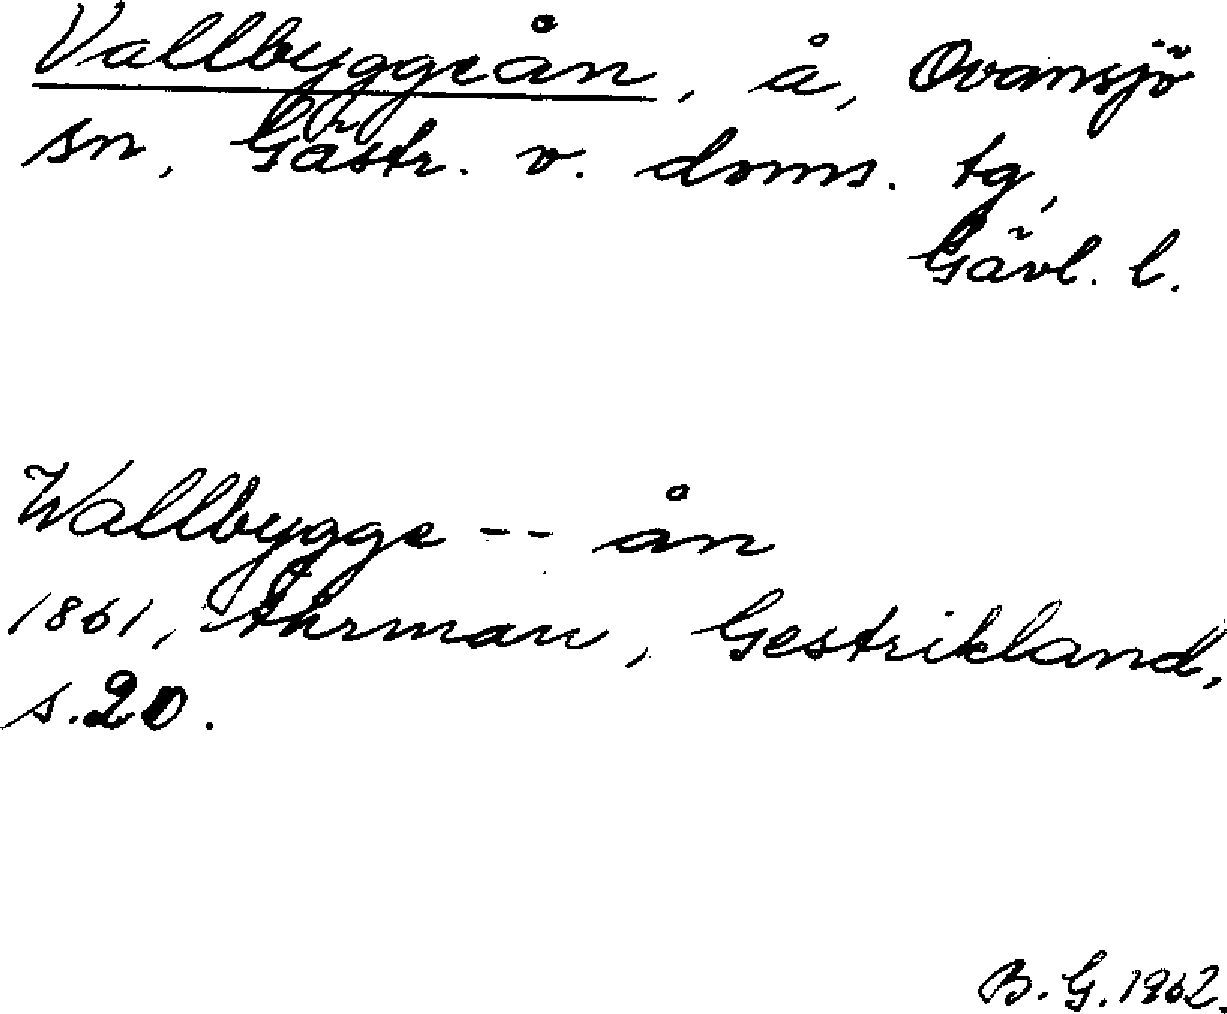 Vallbyggeån, å, Ovansjö
sn, Gästr. v. doms. tg,
Gävl. l.
Wallbygge -- ån
1861, Ahrman, Gestrikland,
s. 20.
B. G. 1962.